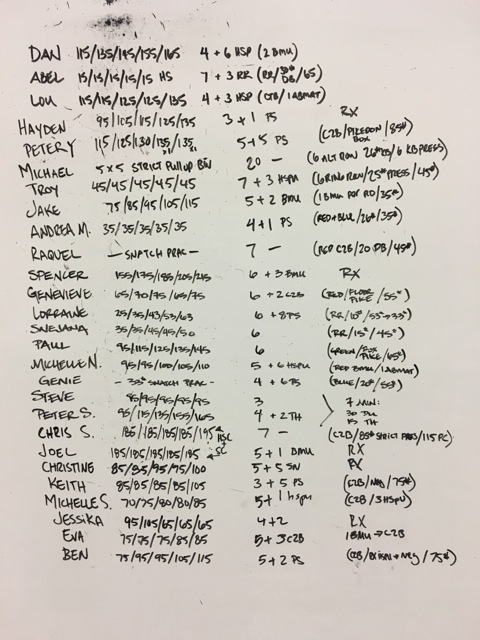 DAN 115/135/145/155/165 4 + 6 HSP (2 BMU)
ABEL 15/15/15/15/15 HS 7 + 3 RR (RR/ DB/65)
LOU 115/115/125/125/135 4 + 3 HSP (CTB/1 ABMAT)
HAYDEN 95/105/115/125/135 3 + 1 PS RX
PETER Y 115/125/130/135/135 5 + 5 PS (C2B/PIKE ON BOX/85#)
MICHAEL 5 x 5 STRICT PULLUP 20 - (6 ALT RON 26# KB/6 KB PRESS)
TROY 45/45/45/45/45 7 + 3 HSPU (6 RING ROW/25# PRESS/45#)
JAKE 75/85/95/105/115 5 + 2 BMU (1 BMU PER RD/35#)
ANDREA M. 35/35/35/35/35 4 + 1 PS (RED+BLUE/26#/35#)
RAQUEL - SNATCH PRAC - 7 - (RED C2B/20 DB/45#)
SPENCER 155/175/185/205/215 6 + 3 BMU RX
GENEVIEVE 65/70/75/65/75 6 + 2 C2B (RED/FLOOR PIKE/55#)
LORRAINE 25/35/43/53/63 6 + 8 PS (RR/15#/55→33#)
SNEJANA 35/35/45/45/50 6 (RR/15#/45#)
PAUL 95/115/125/135/145 6 (GREEN/BOX PIKE/65#)
MICHELLE N. 95/95/100/105/110 5 + 6 HSPU (RED BMU/1 ABMAT)
GENIE - 33# SNATCH PRAC - 4 + 6 PS (BLUE/20#/33#)
STEVE 85/95/95/95/95 3 7 MIN:
PETER S. 95/115/135/155/165 4 + 2 TH 30 DU
CHRIS S. 185/185/185/185/195 HSC 7 - (C2B/85# STRICT PRESS/115 PC)
JOEL 185/185/185/185/185 SC 5 + 1 BMU RX
CHRISTINE 85/85/95/95/100 5 + 5 SN RX
KEITH 85/85/85/85/105 3 + 5 PS (C2B/ /75#)
MICHELLE S. 70/75/80/80/85 5 + 1 HSPU (C2B/3 HSPU)
JESSIKA 95/105/65/65/65 4 + 2 RX
EVA 75/75/75/85/85 5 + 3 C2B 1 BMU → C2B
BEN 75/95/95/105/115 5 + 2 PS (C2B/ → NEG/75#)